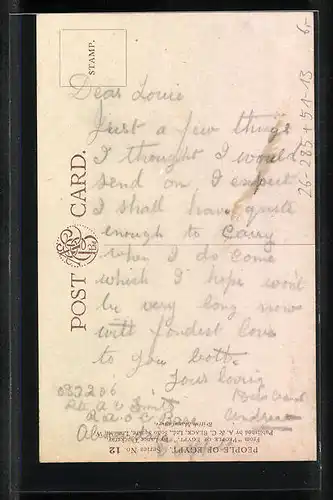 STAMP.
POST CARD.
Dear Louie
Just a few things
I thought I would
send on I expect
I shall have quite
enough to carry
when I do come
which I hope won't
be very long now
with fondest love
to you both
Yours loving
26-285+51-13
6,-
PEOPLE OF EGYPT. Series No. 12
From "PEOPLE OF EGYPT," By Lance Thackeray
Published by A. & C. BLACK, Ltd., Soho Square, London, W.